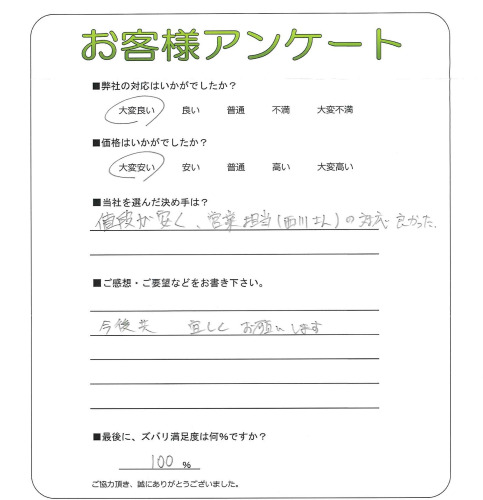 お客様アンケート
■弊社の対応はいかがでしたか？
大変良い 良い 普通 不満 大変不満
■価格はいかがでしたか？
大変安い 安い 普通 高い 大変高い
■当社を選んだ決め手は？
値段が安く、営業担当(西川さん)の対応良かった.
■ご感想・ご要望などをお書き下さい。
今後共 宜しく お願いします
■最後に、ズバリ満足度は何%ですか？
100 %
ご協力頂き、誠にありがとうございました。